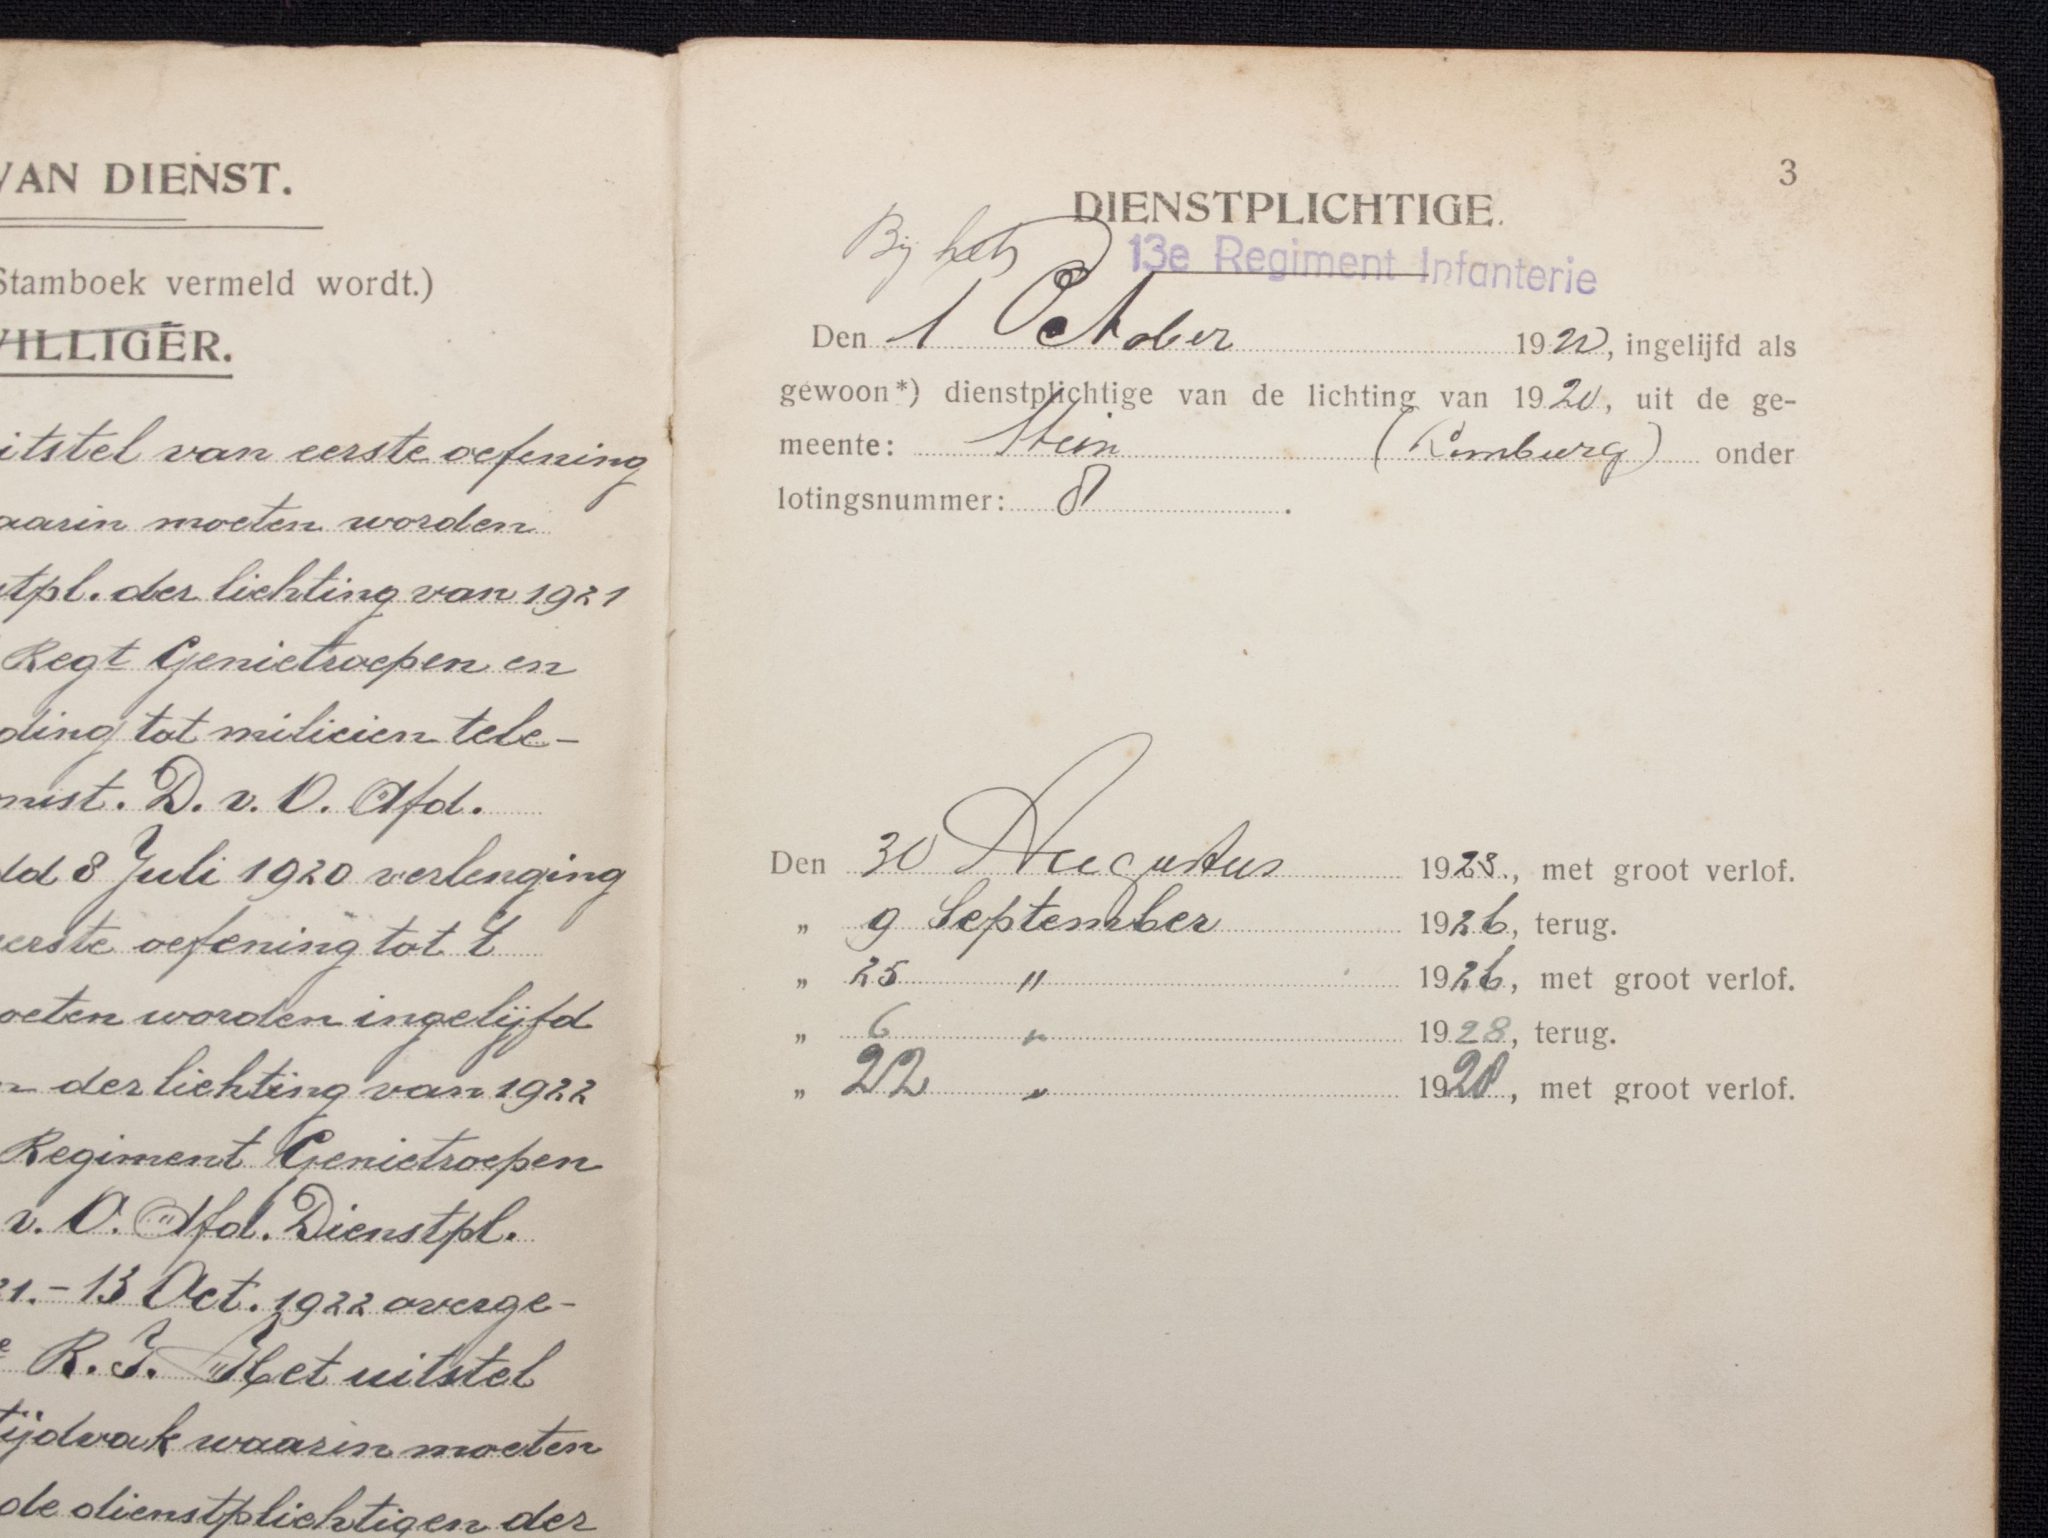 VAN DIENST.
Stamboek vermeld wordt.)
VILLIGER.
itstel van eerste oefening
aarin moeten worden
stpl. der lichting van 1921
Regt Genietroepen en
ding tot milicien tele-
nist. D. v. O. Afd.
dd 8 Juli 1920 verlenging
eerste oefening tot 't
oeten worden ingelijfd
n der lichting van 1922
Regiment Genietroepen
v. O. Afd. Dienstpl.
21.-13 Oct. 1922 overge-
e R. I. Het uitstel
tijdvak waarin moeten
de dienstplichtigen der
3
DIENSTPLICHTIGE.
Bij het 13e Regiment Infanterie
Den 1 October 1922, ingelijfd als
gewoon*) dienstplichtige van de lichting van 1920, uit de ge-
meente: Stein (Limburg) onder
lotingsnummer: 8.
Den 30 Augustus 1923., met groot verlof.
„ 9 September 1926, terug.
„ 25 " 1926, met groot verlof.
„ 6 " 1928, terug.
„ 22 " 1928, met groot verlof.